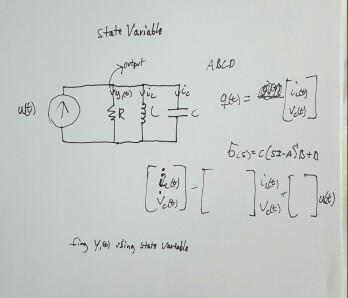 State Variable
output
ABCD
y₁(t) i_L i_c
u(t) R L C
q(t) = [i_L(t)
v_c(t)]
G(s) = C(SI-A)⁻¹B+D
[i̇_L(t) = [ ] i_L(t) + [ ] u(t)
v̇_c(t)] v_c(t)
fing Y₁(t) using state variable